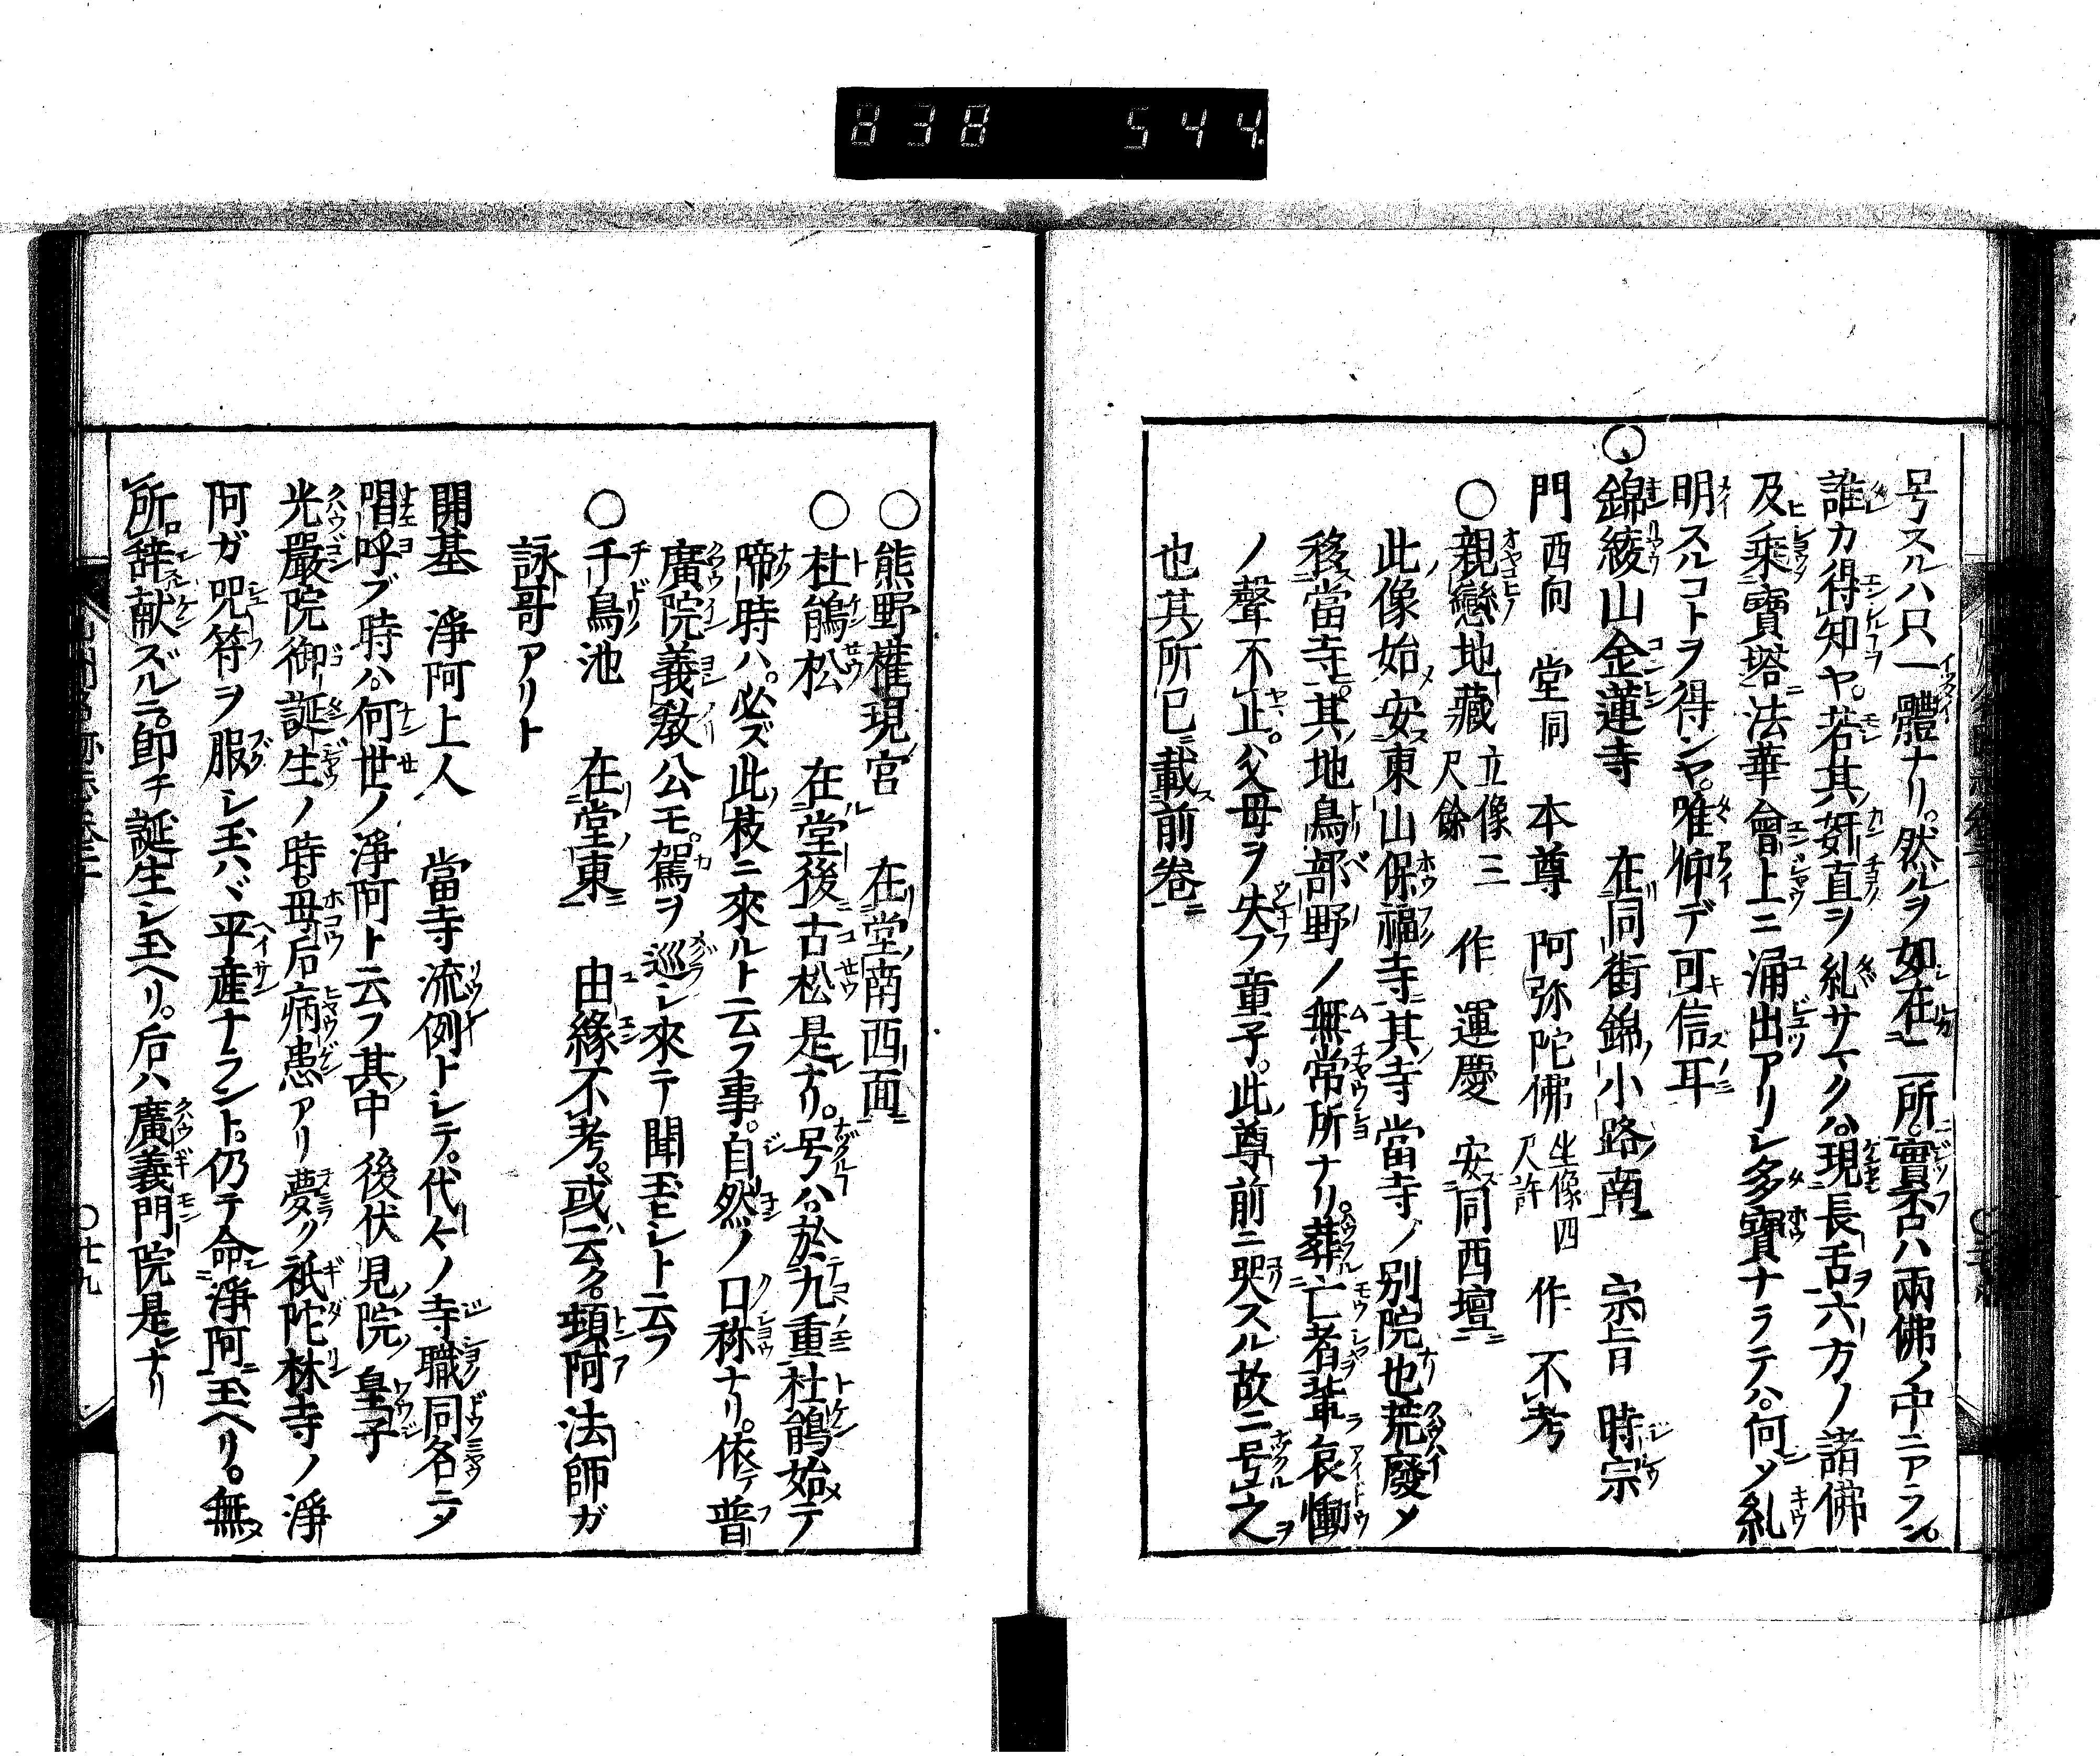 838 544
号スルハ只一體ナリ。然ルヲ如在二所。實否ハ兩佛ノ中ニアラン。
誰カ得知ヤ。若其奸直ヲ糺サイクハ。現長舌六方ノ諸佛
及乘寶塔法華會上ニ涌出アリシ多寶ナラテハ。何ソ糺
明スルコトヲ得ンヤ。唯仰デ可信耳
○錦綾山金蓮寺 在同街錦小路南 宗旨 時宗
門西向 堂同 本尊 阿弥陀佛坐像四尺許 作不考
○親戀地藏立像三尺餘 作 運慶 安同西壇
此像始安東山保福寺其寺當寺ノ別院也荒廢メ
移當寺。其地鳥部野ノ無常所ナリ。葬亡者輩哀慟
ノ聲不止。父母ヲ失フ童子。此尊前ニ哭スル故ニ号之
也其所已載前卷
○熊野權現宮 在堂南西面
○杜鵑松 在堂後古松是ナリ。号ハ於九重杜鵑始テ
啼時ハ。必ズ此枝ニ來ルト云フ事。自然ノ口称ナリ。依テ普
廣院義教公モ。駕ヲ巡シ來テ聞玉ヒシト云フ
○千鳥池 在堂東 由緣不考。或云ク。頓阿法師ガ
詠哥アリト
開基 淨阿上人 當寺流例トシテ。代々ノ寺職同名ニメ
唱呼ブ時ハ。何世ノ淨阿ト云フ其中 後伏見院 皇子
光嚴院御誕生ノ時。母后病患アリ夢ク祇陀林寺ノ淨
阿ガ咒符ヲ服シ玉ハヾ平産ナラント。仍テ命淨阿玉ヘリ。無
所辞献ズルニ。即チ誕生シ玉ヘリ。后ハ廣義門院是ナリ
○七九